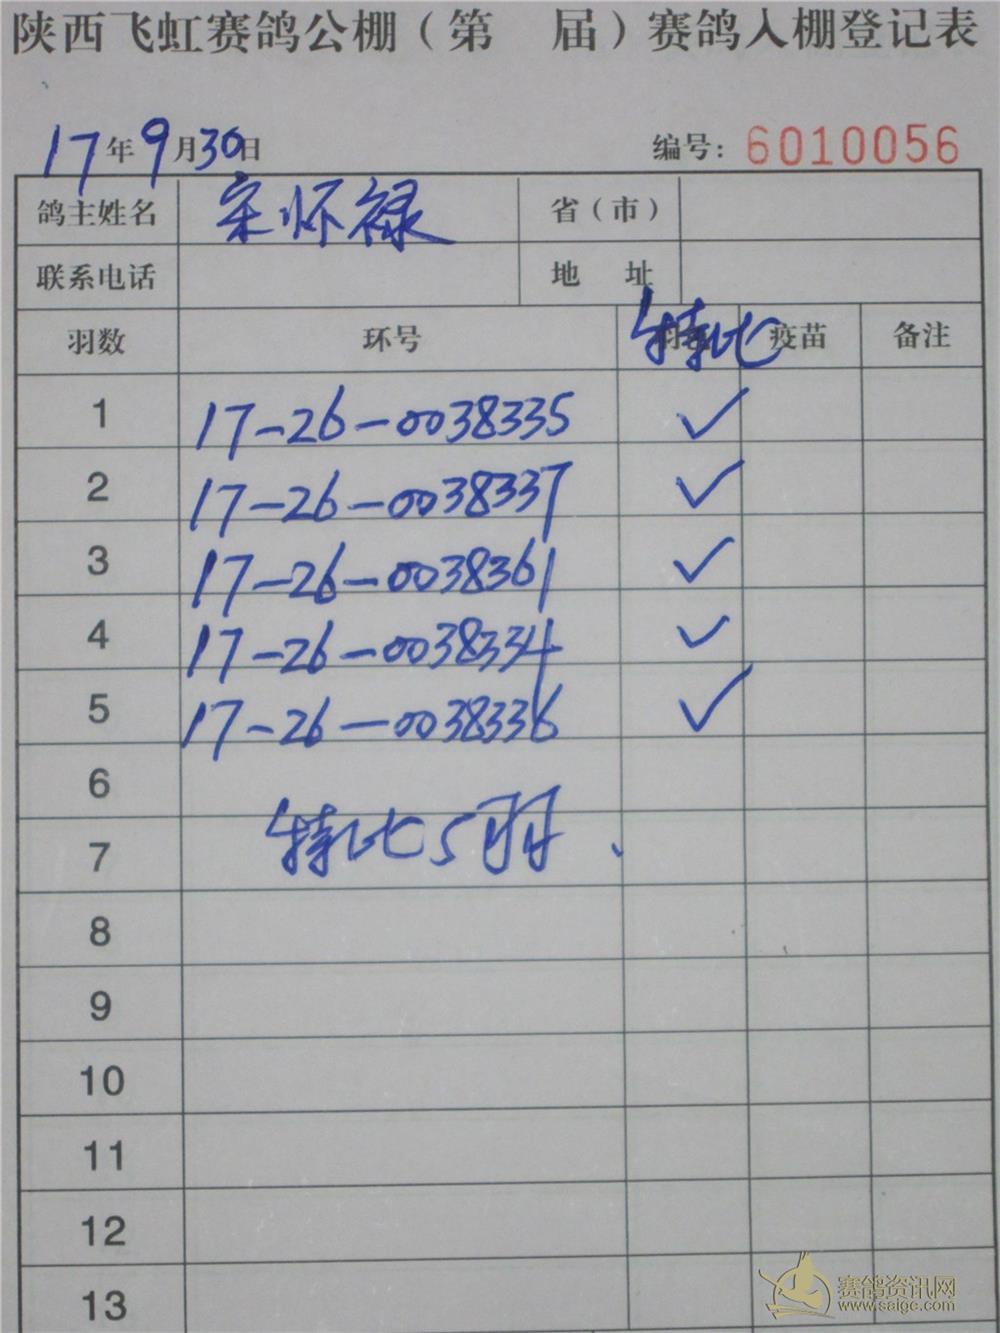 陕西飞虹赛鸽公棚（第 届）赛鸽入棚登记表
17年9月30日 编号：6010056
鸽主姓名 宋怀禄 省（市）
联系电话 地 址
羽数 环号 特比 疫苗 备注
1 17-26-0038335 ✓
2 17-26-0038337 ✓
3 17-26-0038361 ✓
4 17-26-0038334 ✓
5 17-26-0038336 ✓
6
特比5羽.
7
8
9
10
11
12
13
赛鸽资讯网
www.saigc.com